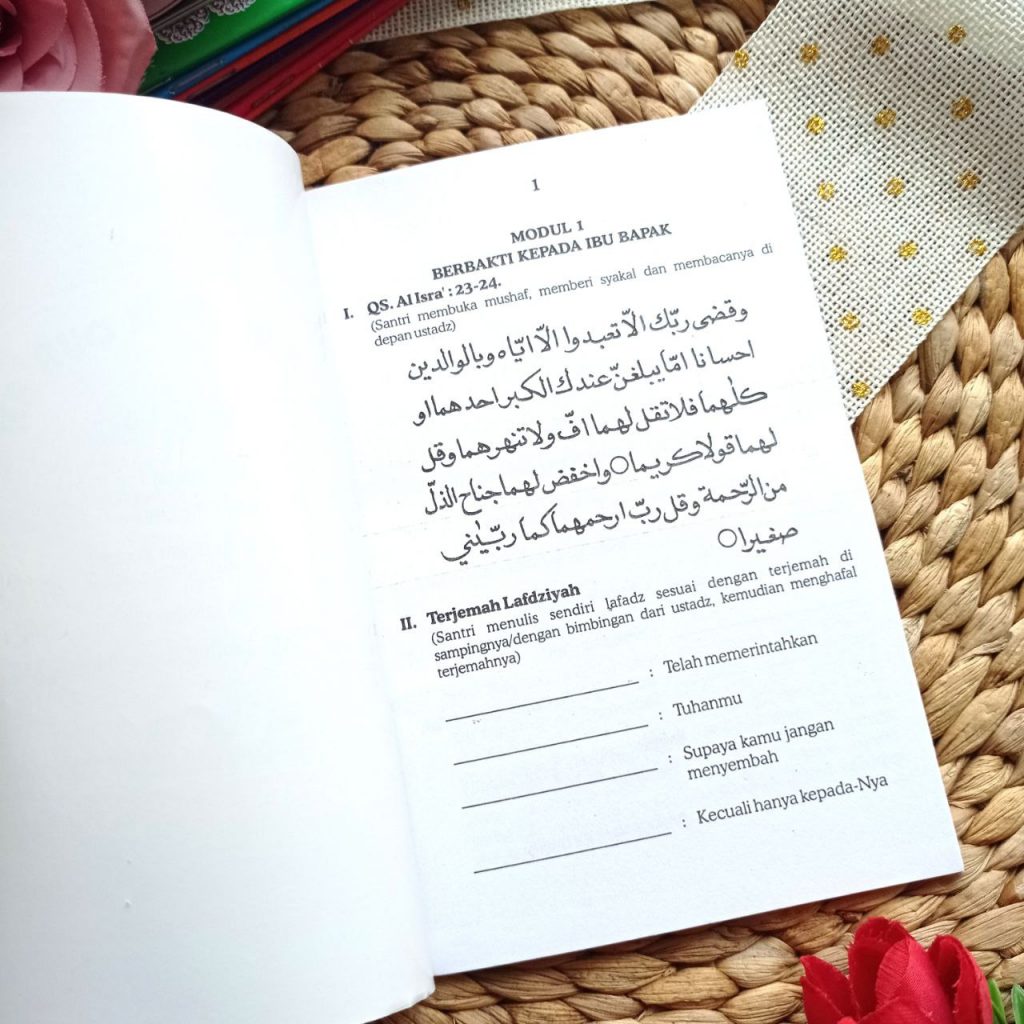 1
MODUL 1
BERBAKTI KEPADA IBU BAPAK
I. QS. Al Isra' : 23-24.
(Santri membuka mushaf, memberi syakal dan membacanya di
depan ustadz)
وقضى ربّك الاّ تعبدوا الاّ ايّاه وبالوالدين
احسانا امّا يبلغنّ عندك الكبر احدهما او
كلٰهما فلا تقل لهما افّ ولا تنهرهما وقل
لهما قولا كريما ○ واخفض لهما جناح الذلّ
من الرّحمة وقل ربّ ارحمهما كما ربّيٰني
صغيرا ○
II. Terjemah Lafdziyah
(Santri menulis sendiri lafadz sesuai dengan terjemah di
sampingnya/dengan bimbingan dari ustadz, kemudian menghafal
terjemahnya)
: Telah memerintahkan
: Tuhanmu
: Supaya kamu jangan
menyembah
: Kecuali hanya kepada-Nya